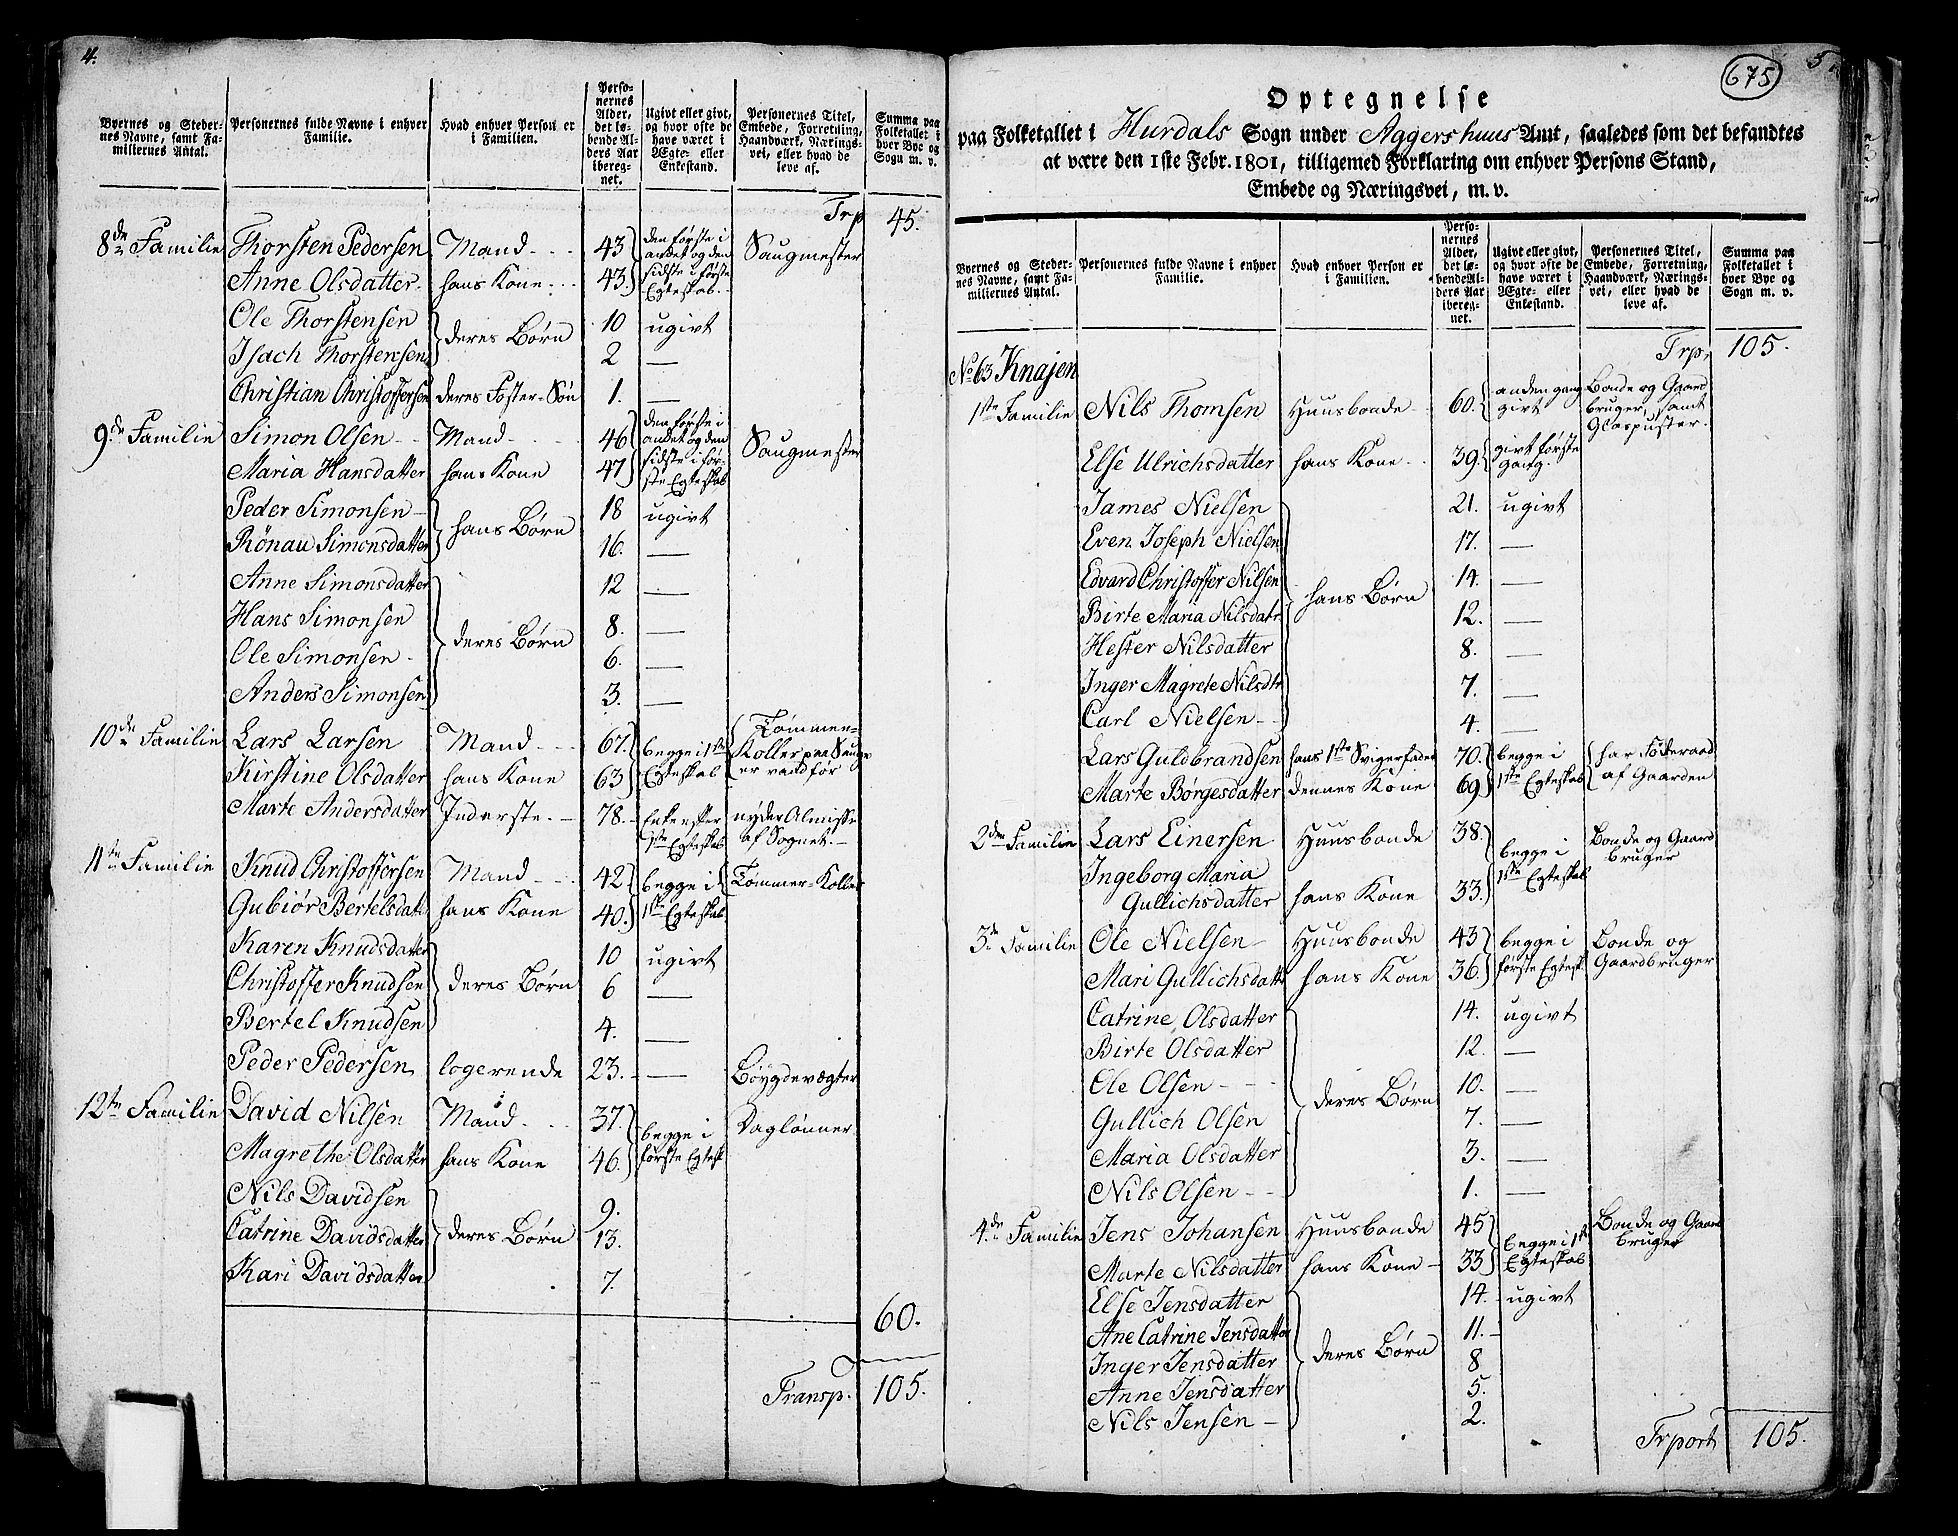 4.
Byernes og Steder-
nes Navne, samt Fa-
miliernes Antal.
Personernes fulde Navne i enhver
Familie.
Hvad enhver Person er
i Familien.
Perso-
nernes
Alder,
det lø-
bende Al-
ders Aar
iberegn-
net.
Ugivt eller givt,
og hvor ofte de
have været i
Ægte- eller
Enkestand.
Personernes Titel,
Embede, Forretning,
Haandværk, Nærings-
vei, eller hvad de
leve af.
Summa paa
Folketallet i
hver Bye og
Sogn m. v.
Trp 45.
8de Familie Thorsten Pedersen Mand 43 den første i andet og den sidste i første Egteskab. Saugmester
Anne Olsdatter hans Kone 43
Ole Thorstensen deres Børn 10 ugivt
Isach Thorstensen 2 —
Christian Christoffersen deres Foster-Søn 1. —
9de Familie Simon Olsen Mand 46 den første i andet og den sidste i første Egteskab Saugmester
Maria Hansdatter hans Kone 47
Peder Simonsen hans Børn 18 ugivt
Rönau Simonsdatter 16. —
Anne Simonsdatter deres Børn 12 —
Hans Simonsen 8. —
Ole Simonsen 6. —
Anders Simonsen 3. —
10de Familie Lars Larsen Mand 67. begge i 1ste Egteskab Tømmer-Koller paa Sauge
Kirstine Olsdatter hans Kone 63
Marte Andersdatter Inderste 78. Enke efter 1ste Egteskab nyder Almisse af Sognet.
11te Familie Knud Christoffersen Mand 42 begge i 1ste Egteskab Tømmer-Koller
Gubiør Bertelsdatt hans Kone 40.
Karen Knudsdatter deres Børn 10 ugivt
Christoffer Knudsen 6 —
Bertel Knudsen 4. —
Peder Pedersen logerende 23. — Böygdevægter
12te Familie David Nilsen Mand 37. begge i første Egtesk Daglønner
Magrethe Olsdatter hans Kone 46.
Nils Davidsen deres Børn 9.
Catrine Davidsdatter 13.
Kari Davidsdatter 7.
60.
Transp. 105.
675
5
Optegnelse
paa Folketallet i Hurdals Sogn under Aggershuus Amt, saaledes som det befandtes
at være den 1ste Febr. 1801, tilligemed Forklaring om enhver Persons Stand,
Embede og Næringsvei, m. v.
Byernes og Steder-
nes Navne, samt Fa-
miliernes Antal.
Personernes fulde Navne i enhver
Familie.
Hvad enhver Person er
i Familien.
Perso-
nernes
Alder,
det lø-
bende Al-
ders Aar
iberegn-
net.
Ugivt eller givt,
og hvor ofte de
have været i
Ægte- eller
Enkestand.
Personernes Titel,
Embede, Forretning,
Haandværk, Nærings-
vei, eller hvad de
leve af.
Summa paa
Folketallet i
hver Bye og
Sogn m. v.
Trp. 105.
No 63 Knajen
1ste Familie Nils Thomsen Huusbonde 60. anden gang givt Bonde og Gaard bruger, samt Glaspuster.
Else Ulrichsdatter hans Kone 39. givt første gang.
James Nielsen hans Børn 21. ugivt
Even Joseph Nielsen 17. —
Edvard Christoffer Nilsen 14. —
Birte Maria Nilsdatr 12. —
Hester Nilsdatter 8. —
Inger Magrete Nilsdtr 7. —
Carl Nielsen 4. —
Lars Guldbrandsen hans 1ste Svigerfader 70. begge i 1ste Egteskab har Föderaad af Gaarden
Marte Børgesdatter dennes Kone 69
2den Familie Lars Einersen Huusbonde 38. begge i 1ste Egteskab Bonde og Gaard bruger
Ingeborg Maria
Gullichsdatter hans Kone 33.
3de Familie Ole Nielsen Huusbonde 43 begge i første Egtesk. Bonde og Gaardbruger
Mari Gullichsdatt hans Kone 36.
Catrine Olsdatter deres Børn 14. ugivt
Birte Olsdatter 12. —
Ole Olsen 10. —
Gullich Olsen 7. —
Maria Olsdatter 3. —
Nils Olsen 1. —
4de Familie Jens Johansen Huusbonde 45 begge i 1ste Egteskab Bonde og Gaard bruger
Marte Nilsdatter hans Kone 33
Else Jensdatter deres Børn 14. ugivt
Ane Catrine Jensdatter 11.
Inger Jensdatter 8
Anne Jensdatter 5.
Nils Jensen 2.
Trport 105.